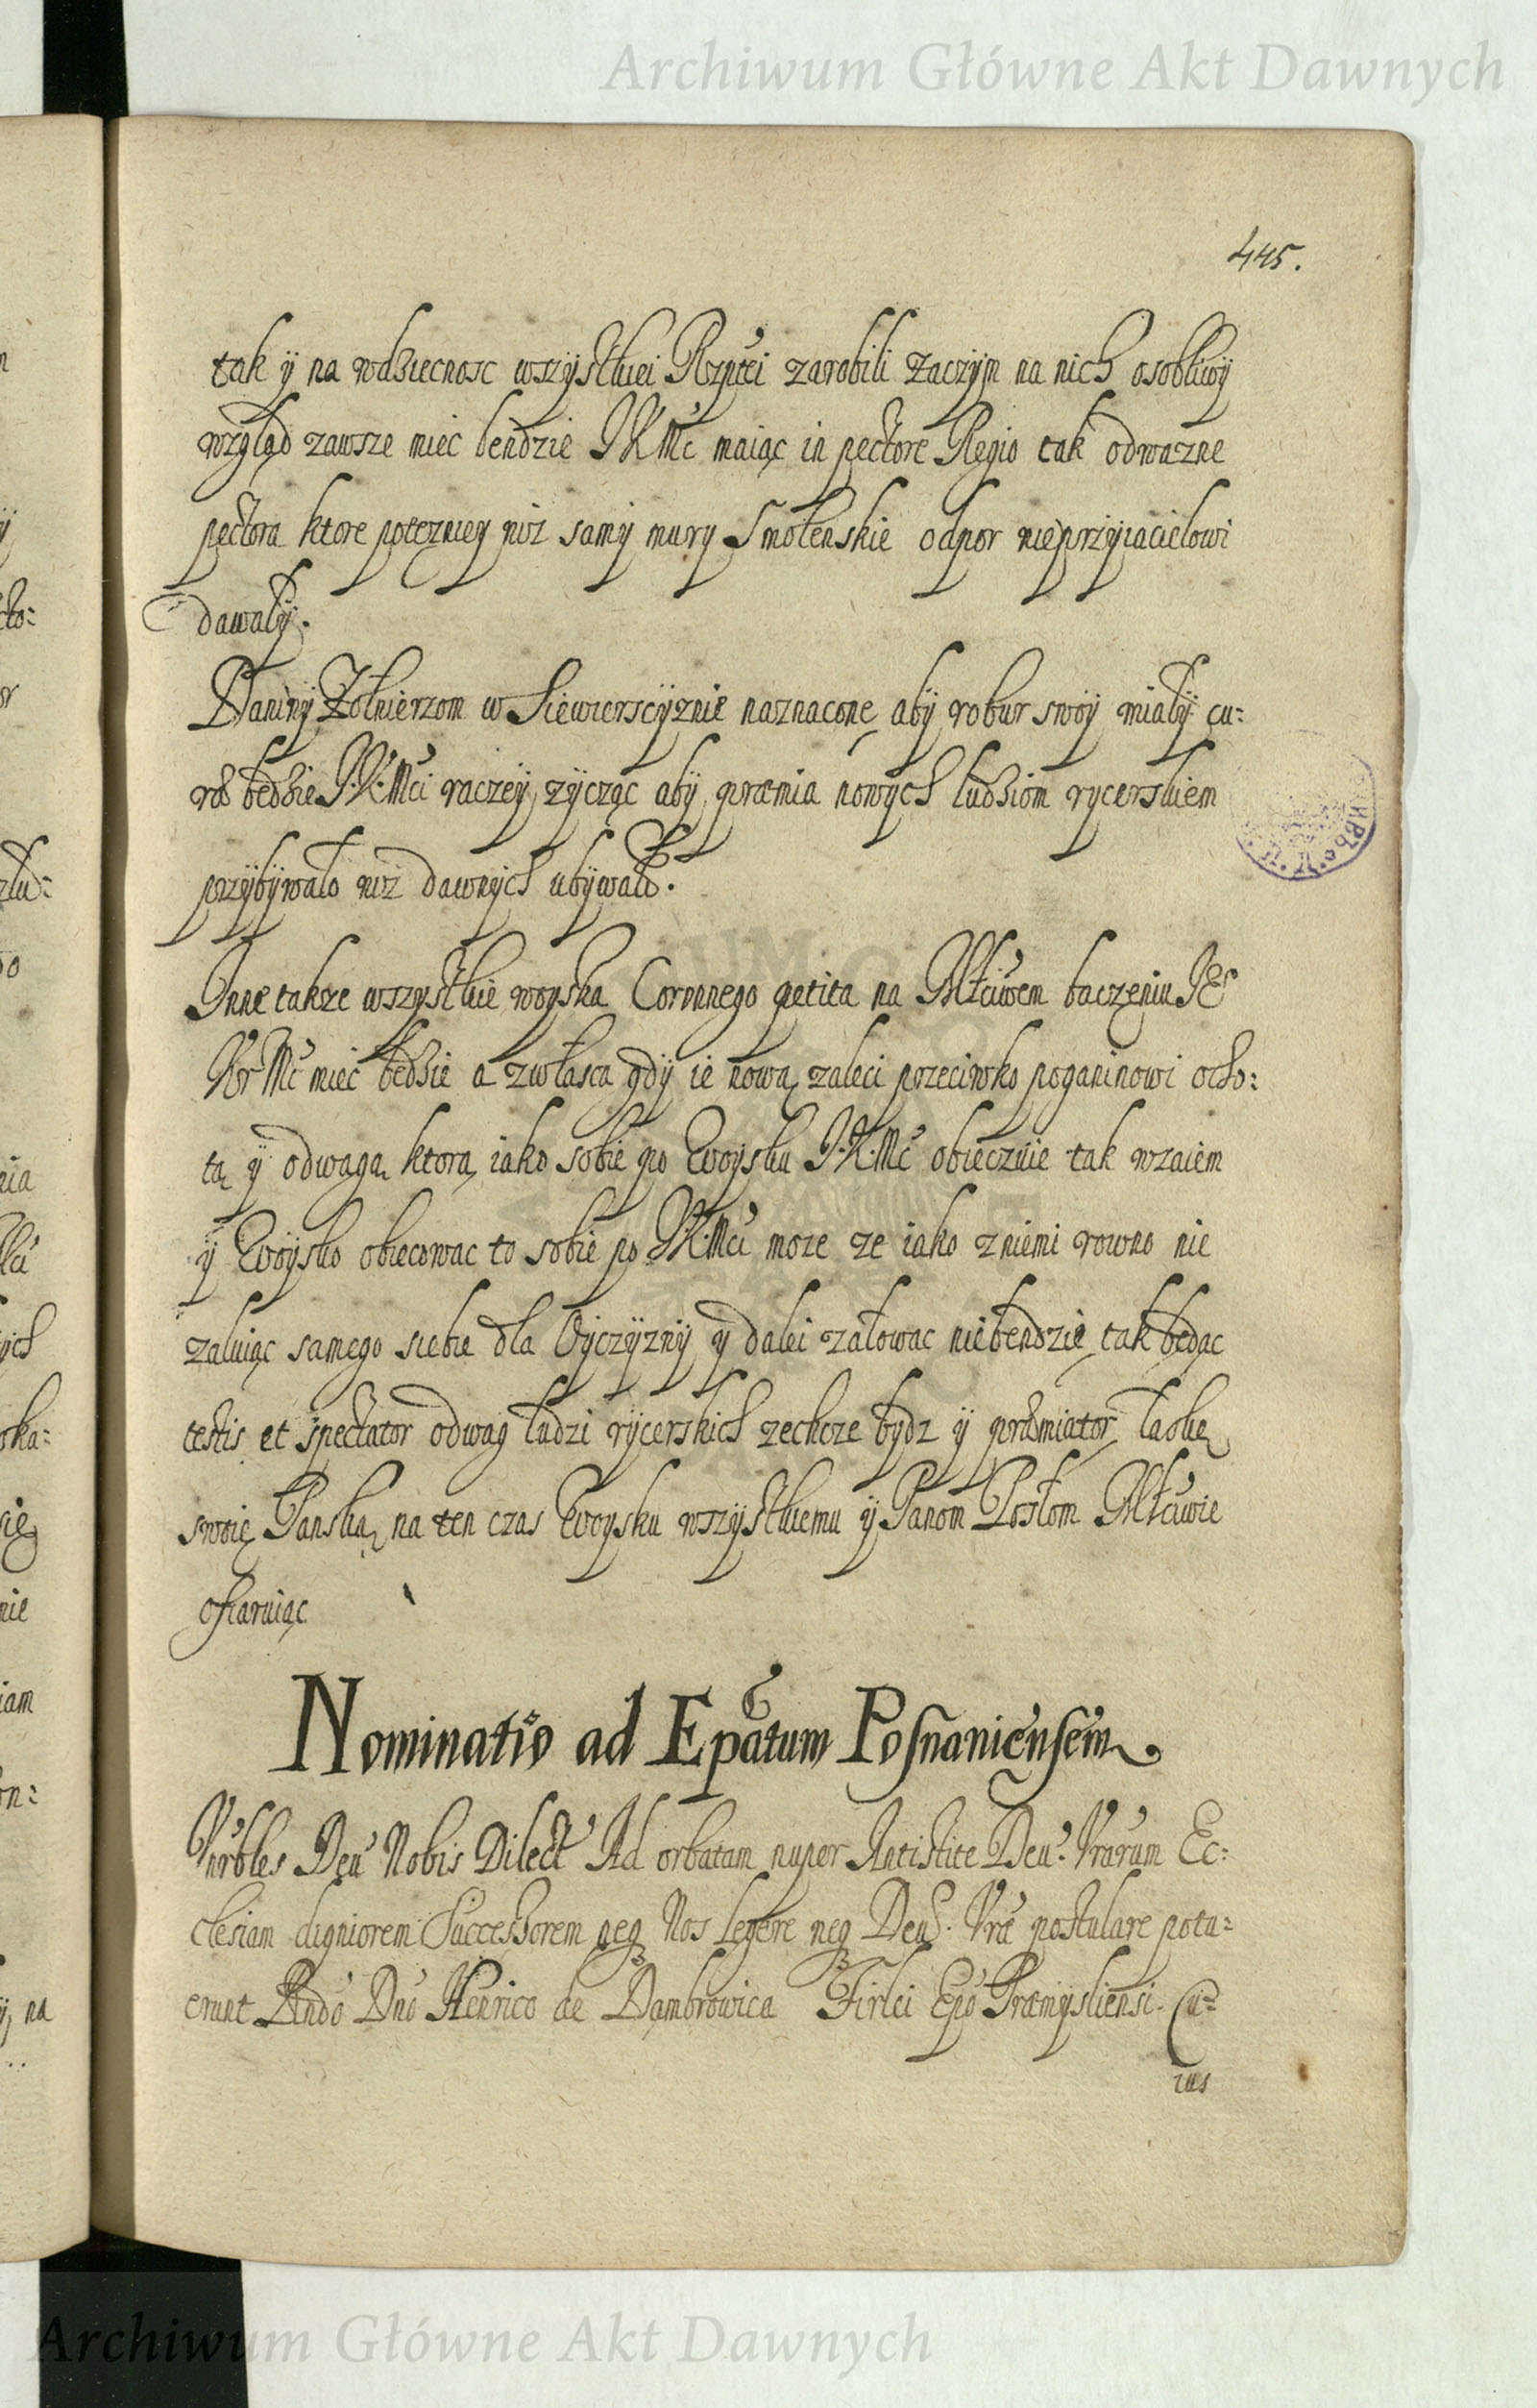 Archiwum Główne Akt Dawnych
445.
tak ÿ na wdziecnosc wszÿstkiei Rzptei zarobili zaczÿm na nich osobliwÿ
wzgląd zawsze miec bendzie JKMc maiąc in pectore Regio tak odwazne
pectora ktore potezniey niz samÿ murÿ Smolenskie odpor nieprzÿiacielowi
dawałÿ.
Daninÿ Zołnierzom w Siewierscÿznie naznaconę abÿ robur swoÿ miałÿ cu:
rȩ będzie J.K.Mci raczeÿ zÿcząc abÿ præmia nowÿch ludziom rÿcerskiem
przÿbÿwało niz dawnÿch ubÿwało.
Inne takze wszÿstkie woÿska Coronnego petita na Młciwem baczeniu JE
Kr Mc miec będzie a zwłasca gdÿ ie nową zaleci przeciwko poganinowi ocho:
tą ÿ odwagą ktorą iako sobie po Woÿsku J.K.Mc obiecznie tak wzaiem
ÿ Woÿsko obiecowac to sobie po J.K.Mci moze ze iako z niemi rowno nie
zaluiąc samego siebie dla Oÿczÿznÿ ÿ dalei załowac niebendzie tak będąc
testis et spectator odwag ludzi rÿcerskich zechcze bÿdz ÿ præmiator łaskę
swoię Panską na ten czas Woÿsku wszÿstkiemu ÿ Panom Posłom Młciwie
ofiaruiąc
Nominatio ad Epatum Posnaniensem
Vnrbles Deu Nobis Dilect Ad orbatam nuper Antistite Deu. Vrarum Ec:
clesiam digniorem Successorem neq Nos legere neq Deu. Vrae postulare potu:
erunt Rndo Dno Henrico de Dąmbrowica Firlei Epo Præmÿsliensi. Cu:
ius
Archiwum Główne Akt Dawnych